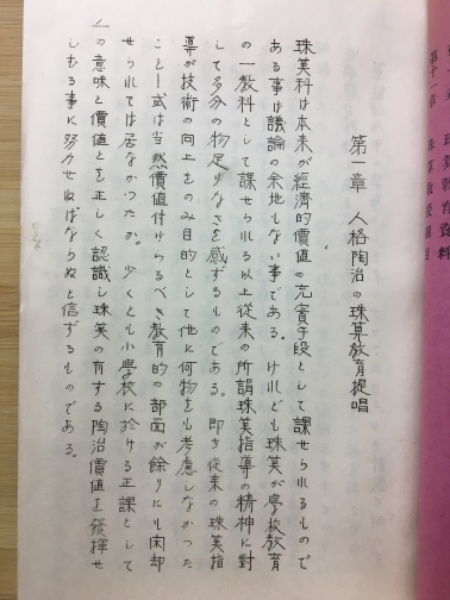 第十一章 珠算教授細目
珠算教育資料
第一章 人格陶治の珠算教育提唱
珠算科は本来が経済的価値の充実手段として課せられるもので
ある事は議論の余地もない事である。けれども珠算が學校教育
の一教科として課せられる以上従来の所謂珠算指導の精神に對
して多分の物足りなさを感ずるものである。即ち従来の珠算指
導が技術の向上をのみ目的として他に何物をも考慮しなかった
こと一式は当然價値付けらるべき教育的の部面が餘りにも閑却
せられては居なかったか。少くとも小學校に於ける正課として
の意味と價値とを正しく認識し珠算の有する陶冶價値を發揮せ
しむる事に努力せねばならぬと信ずるものである。